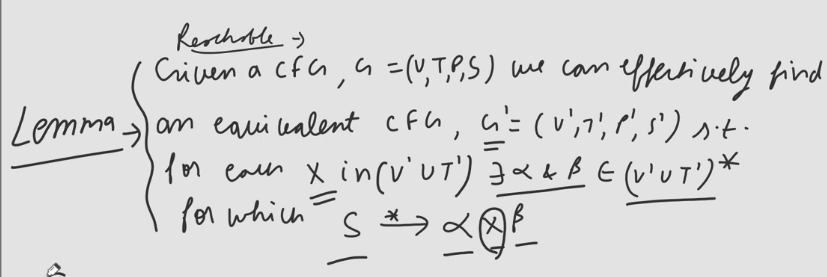 Reachable →
Given a CFG, G = (V,T,P,S) we can effectively find
Lemma → an equivalent CFG, G' = (V',T',P',S') s.t.
for each X in (V' ∪ T') ∃ α & β ∈ (V' ∪ T')*
for which S *→ α X β